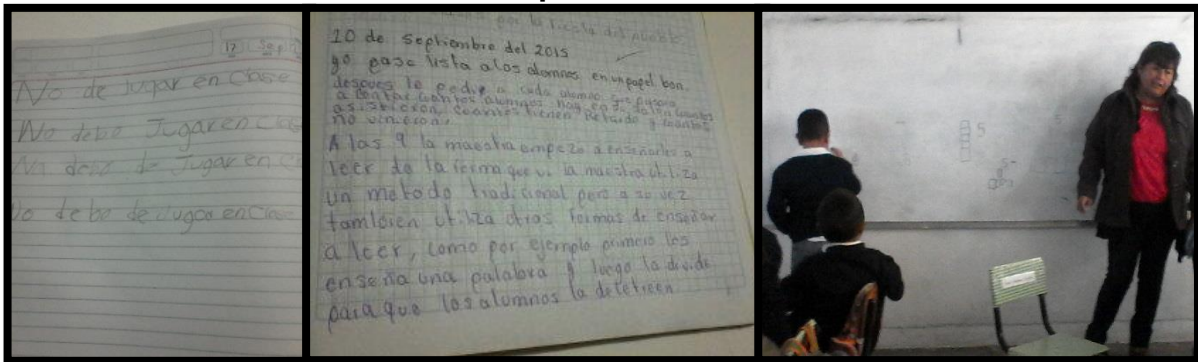 12 Sep
No de Jugar en Clase
No debo Jugar en Clas
No debo de Jugar en C
No debo de Jugar en Clase
por la fiesta del pueblo
10 de septiembre del 2015
yo pase lista a los alumnos en un papel bon.
despues le pedie a cada alumno que pasara
a contar cuantos alumnos hay en cuantos
asistieron, cuantos tienen Retardo y cuantos
no vinieron.
A las 9 la maestra empezo a enseñarles a
leer de la forma que vi la maestra utiliza
un metodo tradicional pero a su vez
tambien utiliza otras formas de enseñar
a leer, como por ejemplo primero les
enseña una palabra y luego la divide
para que los alumnos la deletreen
5
5